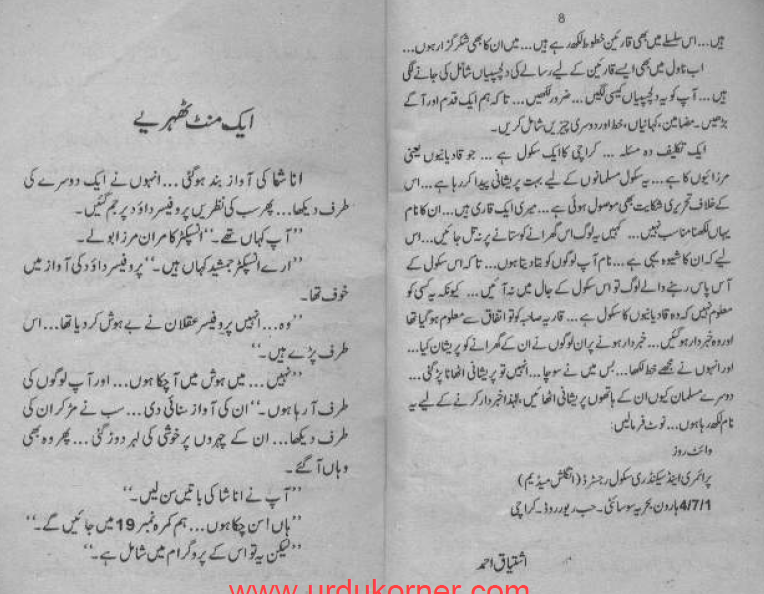 8
ہیں... اس سلسلے میں بھی قارئین خطوط لکھ رہے ہیں... میں ان کا بھی شکر گزار ہوں...
اب ناول میں بھی ایسے قارئین کے لیے رسالے کی دلچسپیاں شامل کی جانے لگی
ہیں... آپ کو یہ دلچسپیاں کیسی لگیں... ضرور لکھیں... تاکہ ہم ایک قدم اور آگے
بڑھیں۔ مضامین، کہانیاں، خط اور دوسری چیزیں شامل کریں۔
ایک تکلیف دہ مسئلہ... کراچی کا ایک سکول ہے... جو قادیانیوں یعنی
مرزائیوں کا ہے... یہ سکول مسلمانوں کے لیے بہت پریشانی پیدا کر رہا ہے... اس
کے خلاف تحریری شکایت بھی موصول ہوئی ہے... میری ایک قاری ہیں... ان کا نام
یہاں لکھنا مناسب نہیں... کہیں یہ لوگ اس گھرانے کو ستانے پر نہ تل جائیں... اس
لیے کہ ان کا شیوہ یہی ہے... نام آپ لوگوں کو بتا دیتا ہوں... تاکہ اس سکول کے
آس پاس رہنے والے لوگ تو اس سکول کے جال میں نہ آئیں... کیونکہ یہ کسی کو
معلوم نہیں کہ وہ قادیانیوں کا سکول ہے... قاریہ صاحبہ کو تو اتفاق سے معلوم ہو گیا تھا
اور وہ خبردار ہو گئیں... خبردار ہونے پر ان لوگوں نے ان کے گھرانے کو پریشان کیا...
اور انہوں نے مجھے خط لکھا... بس میں نے سوچا... انہیں تو پریشانی اٹھانا پڑ گئی...
دوسرے مسلمان کیوں ان کے ہاتھوں پریشانی اٹھائیں، لہٰذا خبردار کرنے کے لیے یہ
نام لکھ رہا ہوں... نوٹ فرما لیں:
وائٹ روز
پرائمری اینڈ سیکنڈری سکول رجسٹرڈ (انگلش میڈیم)
4/7/1 ہارون بحریہ سوسائٹی۔ حب ریور روڈ۔ کراچی
اشتیاق احمد
ایک منٹ ٹھہریے
اناشا کی آواز بند ہو گئی... انہوں نے ایک دوسرے کی
طرف دیکھا... پھر سب کی نظریں پروفیسر داؤد پر جم گئیں۔
’’آپ کہاں تھے۔‘‘ انسپکٹر کامران مرزا بولے۔
’’ارے انسپکٹر جمشید کہاں ہیں۔‘‘ پروفیسر داؤد کی آواز میں
خوف تھا۔
’’وہ... انہیں پروفیسر عقلان نے بے ہوش کر دیا تھا... اس
طرف پڑے ہیں۔‘‘
’’نہیں... میں ہوش میں آ چکا ہوں... اور آپ لوگوں کی
طرف آ رہا ہوں۔‘‘ ان کی آواز سنائی دی... سب نے مڑ کر ان کی
طرف دیکھا... ان کے چہروں پر خوشی کی لہر دوڑ گئی... پھر وہ بھی
وہاں آ گئے۔
’’آپ نے اناشا کی باتیں سن لیں۔‘‘
’’ہاں! سن چکا ہوں... ہم کمرہ نمبر 19 میں جائیں گے۔‘‘
’’لیکن یہ تو اس کے پروگرام میں شامل ہے۔‘‘
www.urdukorner.com